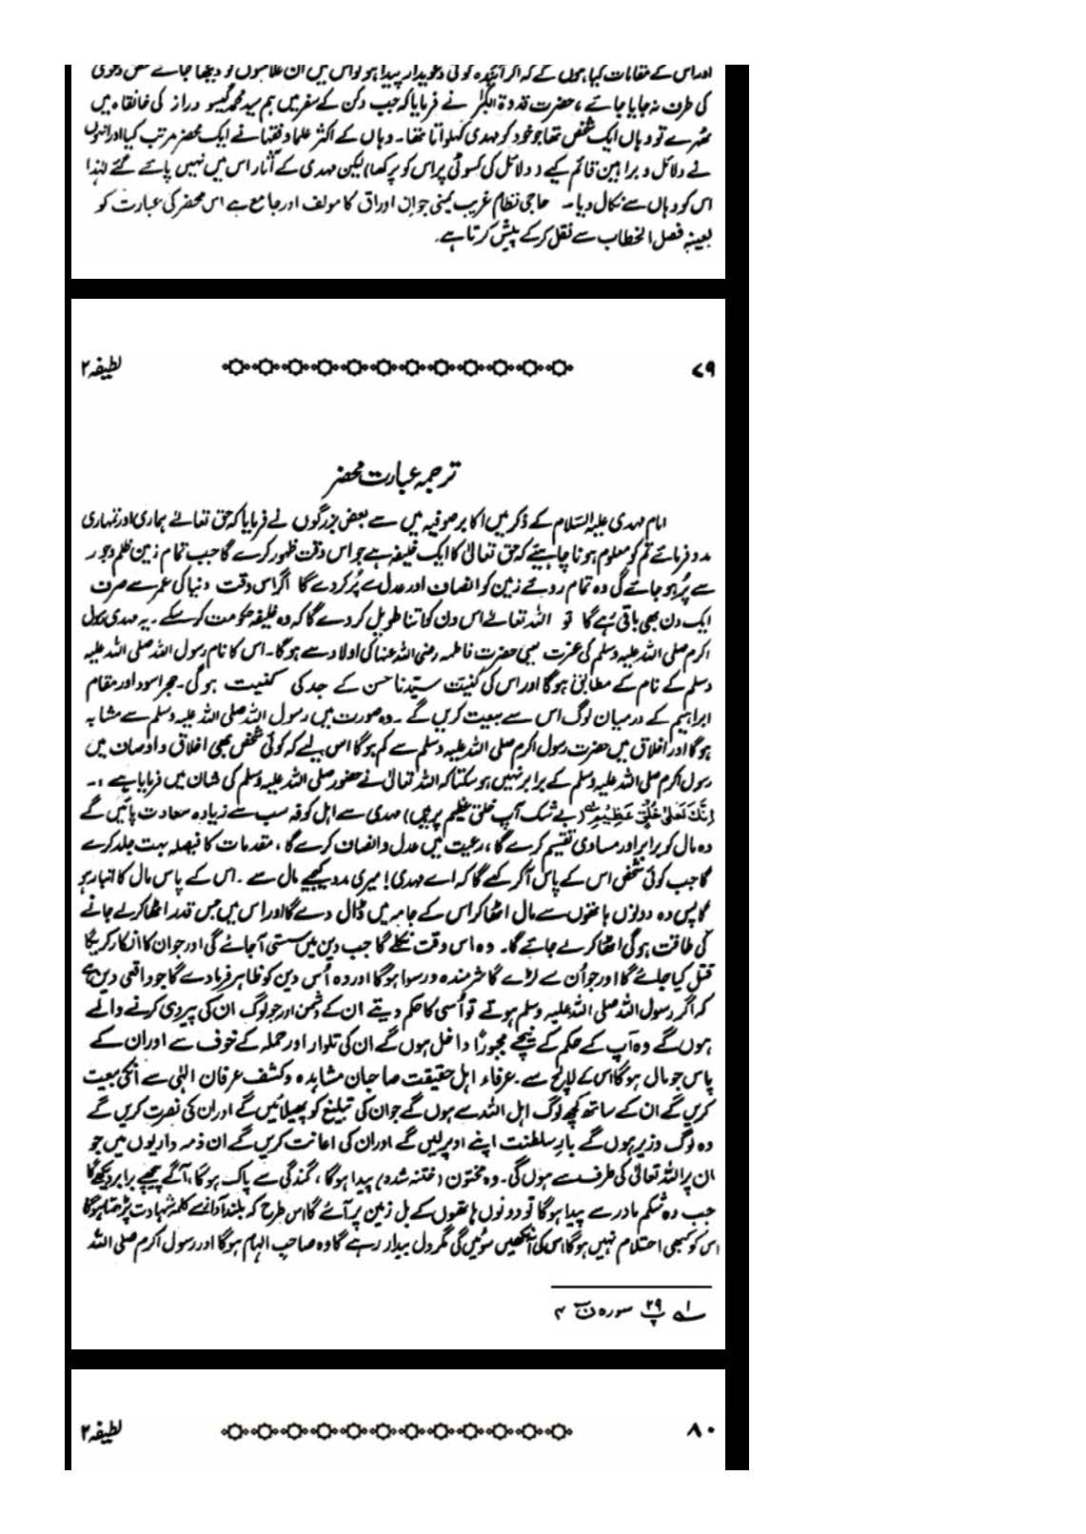 اور اس کے مقامات کیا ہوں گے کہ اگر آئندہ کوئی دعویدار پیدا ہو تو اس میں ان علامتوں کو دیکھا جائے محض دعویٰ
کی طرف نہ جایا جائے ، حضرت قدوۃ الکبرٰ نے فرمایا کہ جب دکن کے سفر میں ہم سید محمد گیسو دراز کی خانقاہ میں
ٹھہرے تو وہاں ایک شخص تھا جو خود کو مہدی کہلواتا تھا۔ وہاں کے اکثر علما و فقہا نے ایک محضر مرتب کیا اور انہوں
نے دلائل و براہین قائم کیے و دلائل کی کسوٹی پر اس کو پرکھا لیکن مہدی کے آثار اس میں نہیں پائے گئے لہٰذا
اس کو وہاں سے نکال دیا۔ حاجی نظام غریب یمنی جو ان اوراق کا مولف اور جامع ہے اس محضر کی عبارت کو
بعینہٖ فصل الخطاب سے نقل کرکے پیش کرتا ہے۔
۷۹ لطیفہ ۲
ترجمہ عبارت محضر
امام مہدی علیہ السلام کے ذکر میں اکابر صوفیہ میں سے بعض بزرگوں نے فرمایا کہ حق تعالےٰ ہماری اور تمہاری
مدد فرمائے تم کو معلوم ہونا چاہیئے کہ حق تعالیٰ کا ایک خلیفہ ہے جو اس وقت ظہور کرے گا جب تمام زمین ظلم و جور
سے پُر ہو جائے گی وہ تمام روئے زمین کو انصاف اور عدل سے پُر کر دے گا اگر اس وقت دنیا کی عمر سے صرف
ایک دن بھی باقی رہے گا تو اللہ تعالےٰ اس دن کو اتنا طویل کر دے گا کہ وہ خلیفہ حکومت کر سکے۔ یہ مہدی رسول
اکرم صلی اللہ علیہ وسلم کی عترت سے یعنی حضرت فاطمہ رضی اللہ عنہا کی اولاد سے ہوگا۔ اس کا نام رسول اللہ صلی اللہ علیہ
وسلم کے نام کے مطابق ہوگا اور اس کی کنیت سیّدنا حسن کے جد کی کنیت ہوگی۔ حجر اسود اور مقام
ابراہیم کے درمیان لوگ اس سے بیعت کریں گے ۔ وہ صورت میں رسول اللہ صلی اللہ علیہ وسلم سے مشابہ
ہوگا اور اخلاق میں حضرت رسول اکرم صلی اللہ علیہ وسلم سے کم ہوگا اس لیے کہ کوئی شخص بھی اخلاق و اوصاف میں
رسول اکرم صلی اللہ علیہ وسلم کے برابر نہیں ہو سکتا کہ اللہ تعالیٰ نے حضور صلی اللہ علیہ وسلم کی شان میں فرمایا ہے :۔
اِنَّكَ لَعَلٰی خُلُقٍ عَظِیْمٍ (بے شک آپ خلق عظیم پر ہیں) مہدی سے اہل کوفہ سب سے زیادہ سعادت پائیں گے
وہ مال کو برابر اور مساوی تقسیم کرے گا ، رعیت میں عدل و انصاف کرے گا ، مقدمات کا فیصلہ بہت جلد کرے
گا جب کوئی شخص اس کے پاس آکر کہے گا کہ اے مہدی! میری مدد کیجیے مال سے ۔ اس کے پاس مال کا انبار ہو
گا پس وہ دونوں ہاتھوں سے مال اٹھا کر اس کے جامہ میں ڈال دے گا اور اس میں جس قدر اٹھا کر لے جانے
کی طاقت ہوگی اٹھا کر لے جائے گا۔ وہ اس وقت نکلے گا جب دین میں سستی آجائے گی اور جو ان کا انکار کریگا
قتل کیا جائے گا اور جو اُن سے لڑے گا شرمندہ و رسوا ہوگا اور وہ اُس دین کو ظاہر فرما دے گا جو واقعی دین ہے
کہ اگر رسول اللہ صلی اللہ علیہ وسلم ہوتے تو اُسی کا حکم دیتے ان کے دشمن اور جو لوگ ان کی پیروی کرنے والے
ہوں گے وہ آپ کے حکم کے نیچے مجبوراً داخل ہوں گے ان کی تلوار اور حملہ کے خوف سے اور ان کے
پاس جو مال ہوگا اس کے لالچ سے ۔ عرفاء اہل حقیقت صاحبان مشاہدہ و کشف عرفان الٰہی سے انکی بیعت
کریں گے ان کے ساتھ کچھ لوگ اہل اللہ سے ہوں گے جو ان کی تبلیغ کو پھیلائیں گے اور ان کی نصرت کریں گے
وہ لوگ وزیر ہوں گے بار سلطنت اپنے اوپر لیں گے اور ان کی اعانت کریں گے ان ذمہ داریوں میں جو
ان پر اللہ تعالیٰ کی طرف سے ہوں گی۔ وہ مختون (ختنہ شدہ) پیدا ہوگا ، گندگی سے پاک ہوگا، آگے پیچھے برابر دیکھے گا
جب وہ شکم مادر سے پیدا ہوگا تو دونوں ہاتھوں کے بل زمین پر آئے گا اس طرح کہ بلند آواز سے کلمہ شہادت پڑھتا ہوگا
اس کو کبھی احتلام نہیں ہوگا اس کی آنکھیں سوئیں گی مگر دل بیدار رہے گا وہ صاحب الہام ہوگا اور رسول اکرم صلی اللہ
۱ے پ ۲۹ سورہ ن ۴
۸۰ لطیفہ ۲